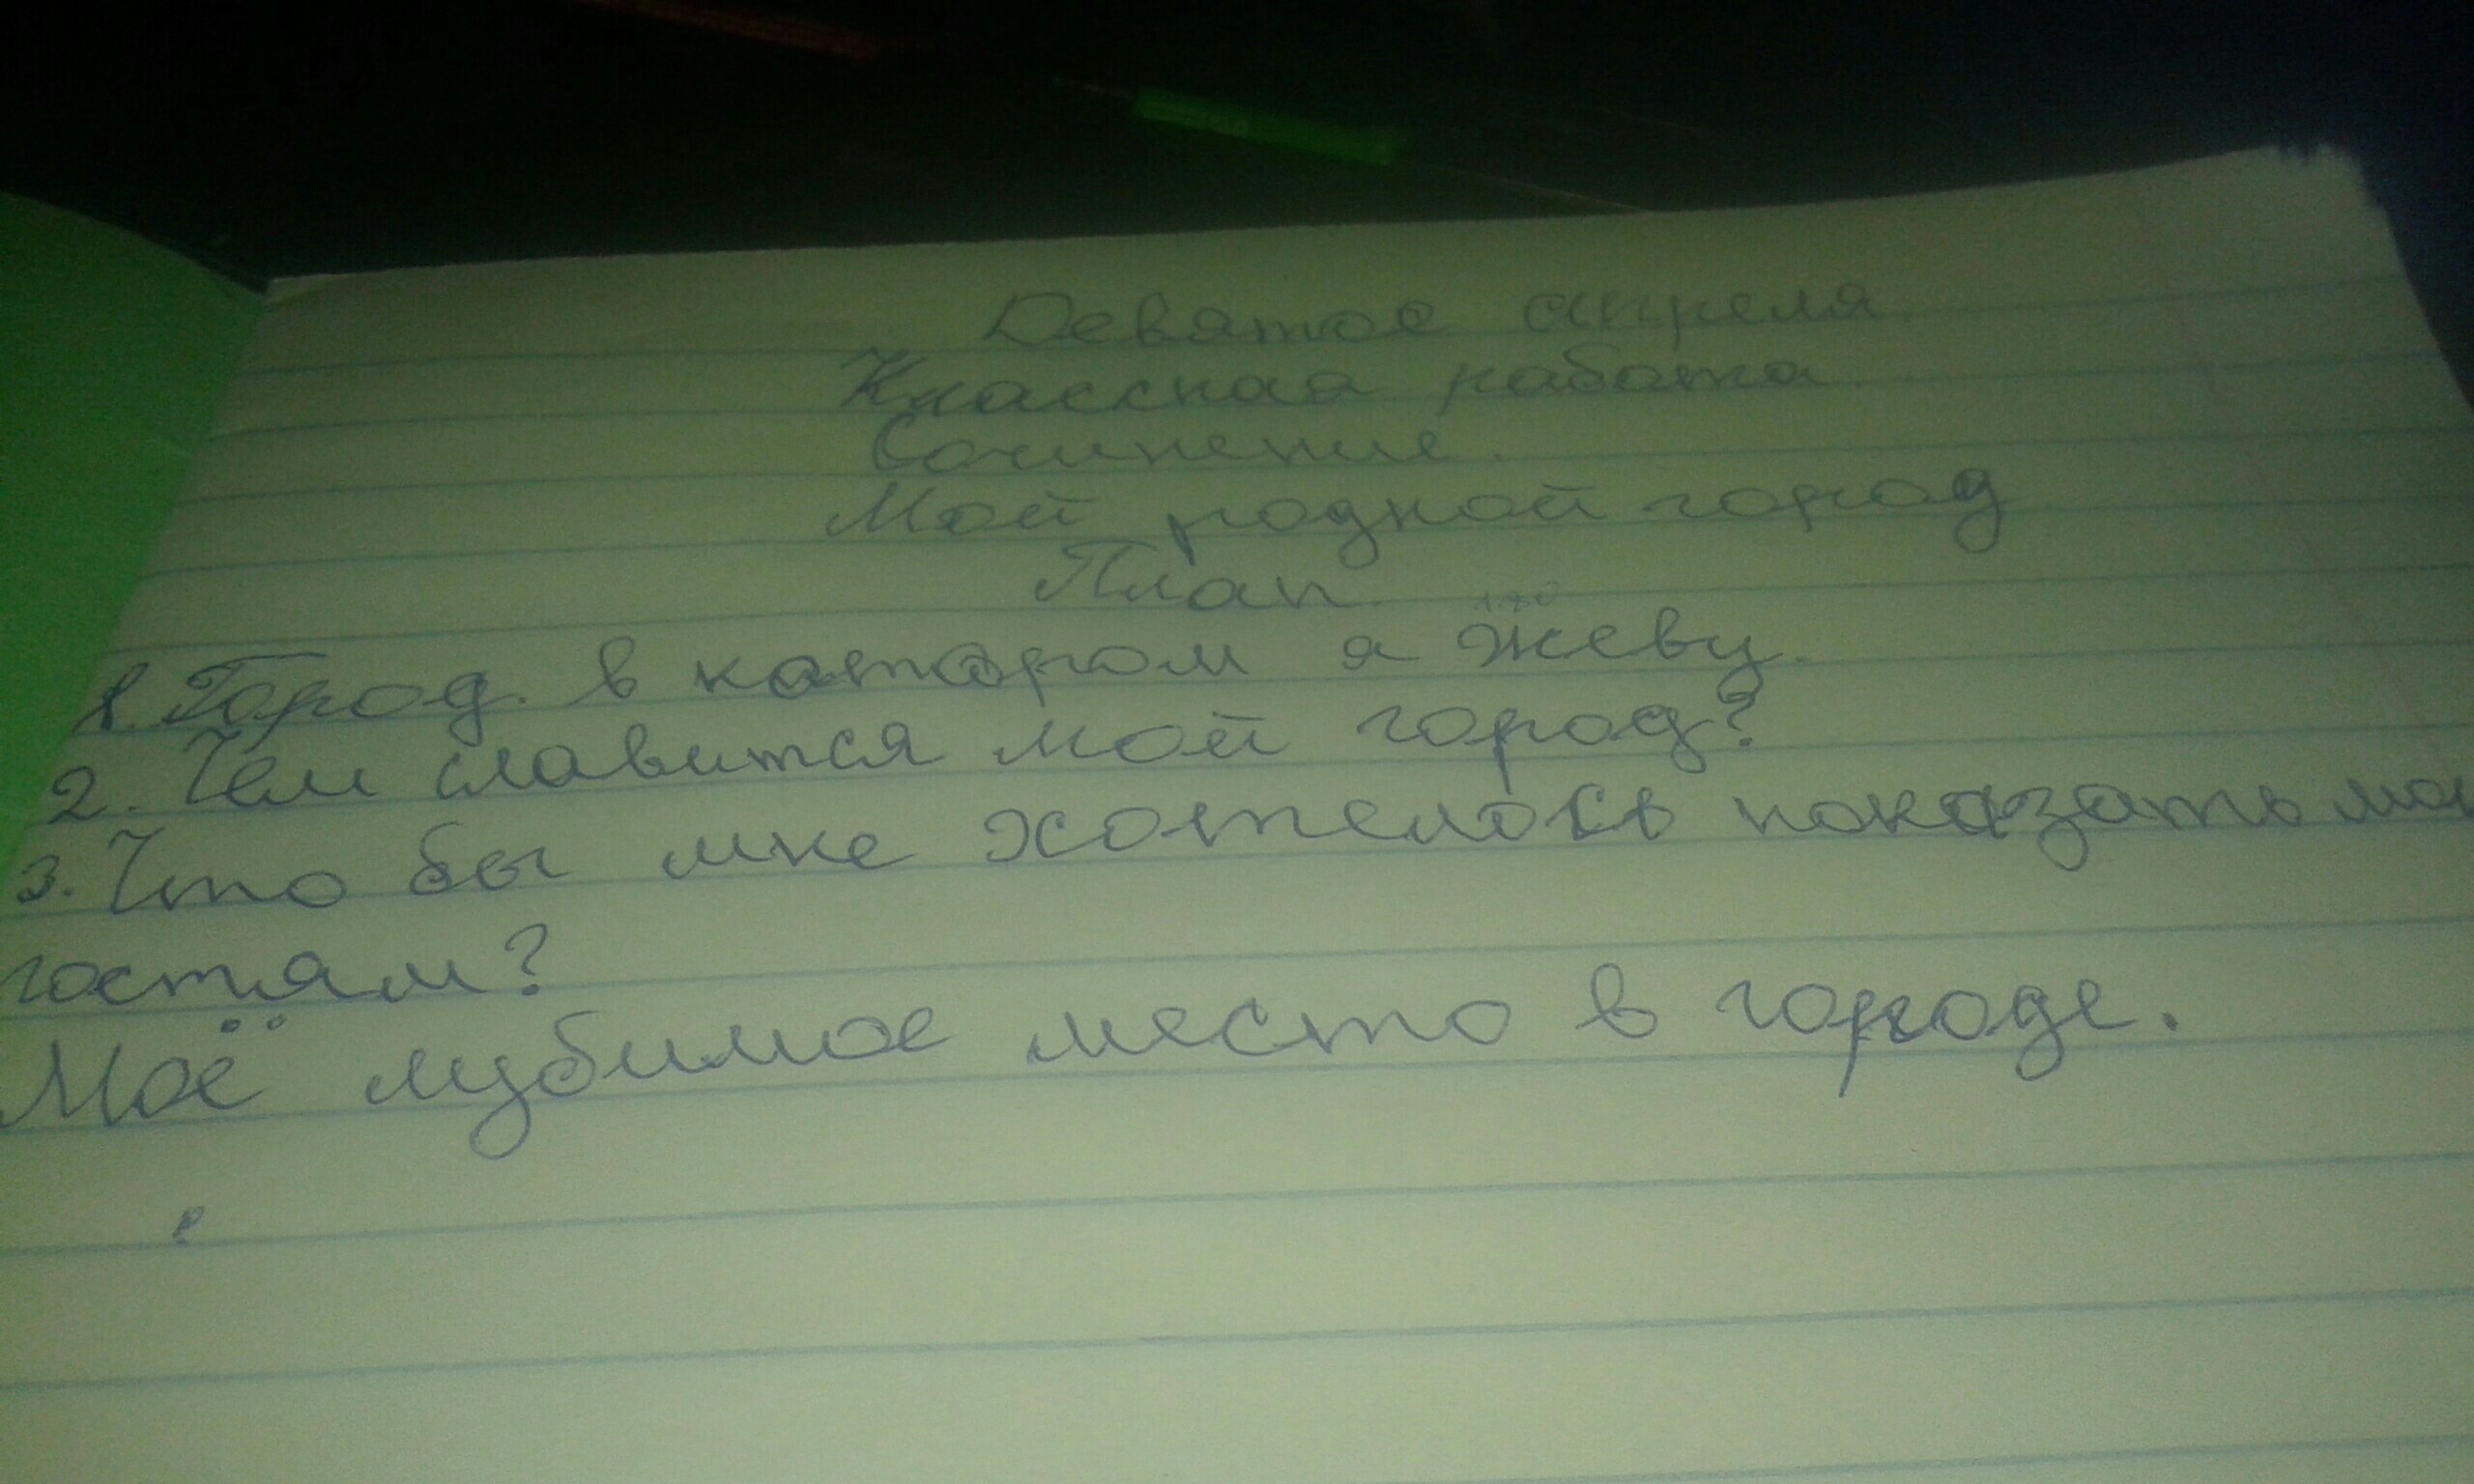 Девятое апреля
Классная работа
Сочинение.
Мой родной город
План.
1. Город. в катором я жеву.
2. Чем славится мой город?
3. Что бы мне хотелось показать
гостям?
Моё лубимое место в городе.